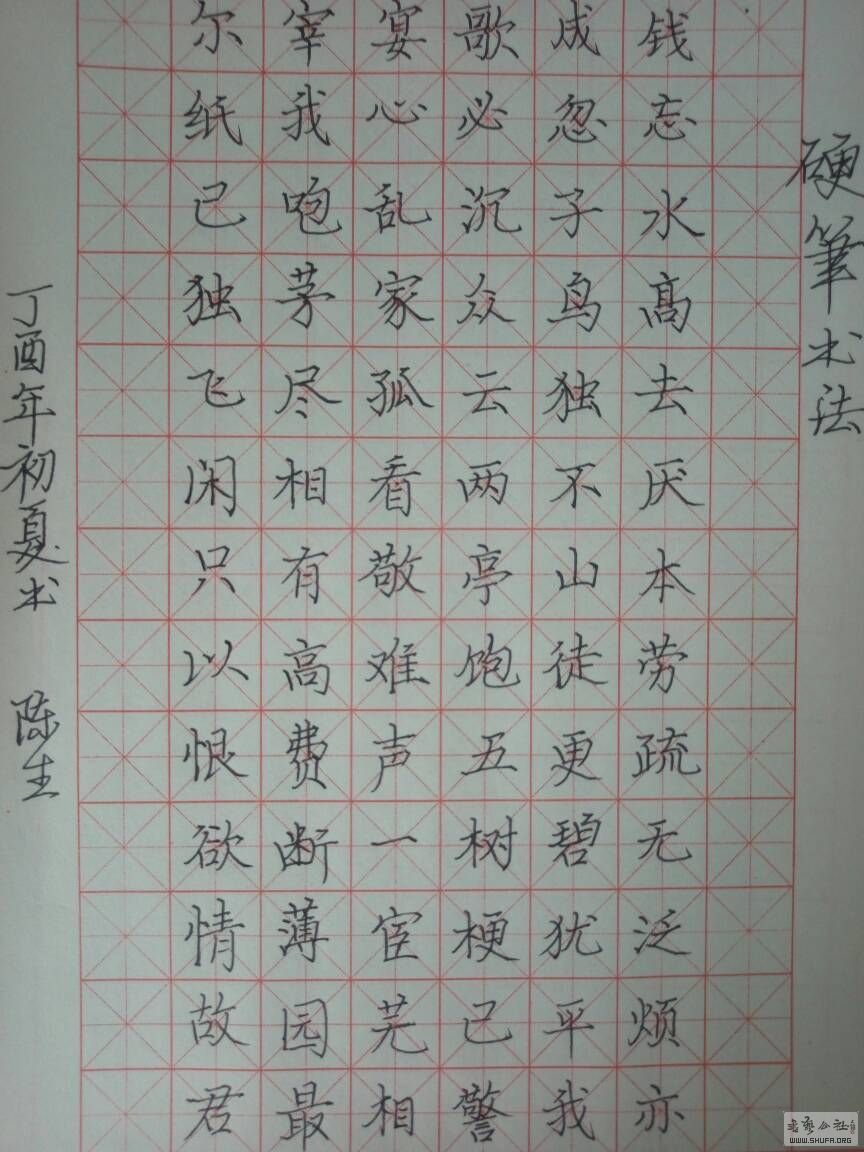 硬筆书法
尔宰宴歌成钱
纸我心必忽忘
己咆乱沉子水
独茅家众鸟髙
飞尽孤云独去
闲相看两不厌
只有敬亭山本
以高难饱徒劳
恨费声五更疏
欲断一树碧无
情薄宦梗犹泛
故园芜已平烦
君最相警我亦
丁酉年初夏书 陈生
书艺公社
WWW.SHUFA.ORG